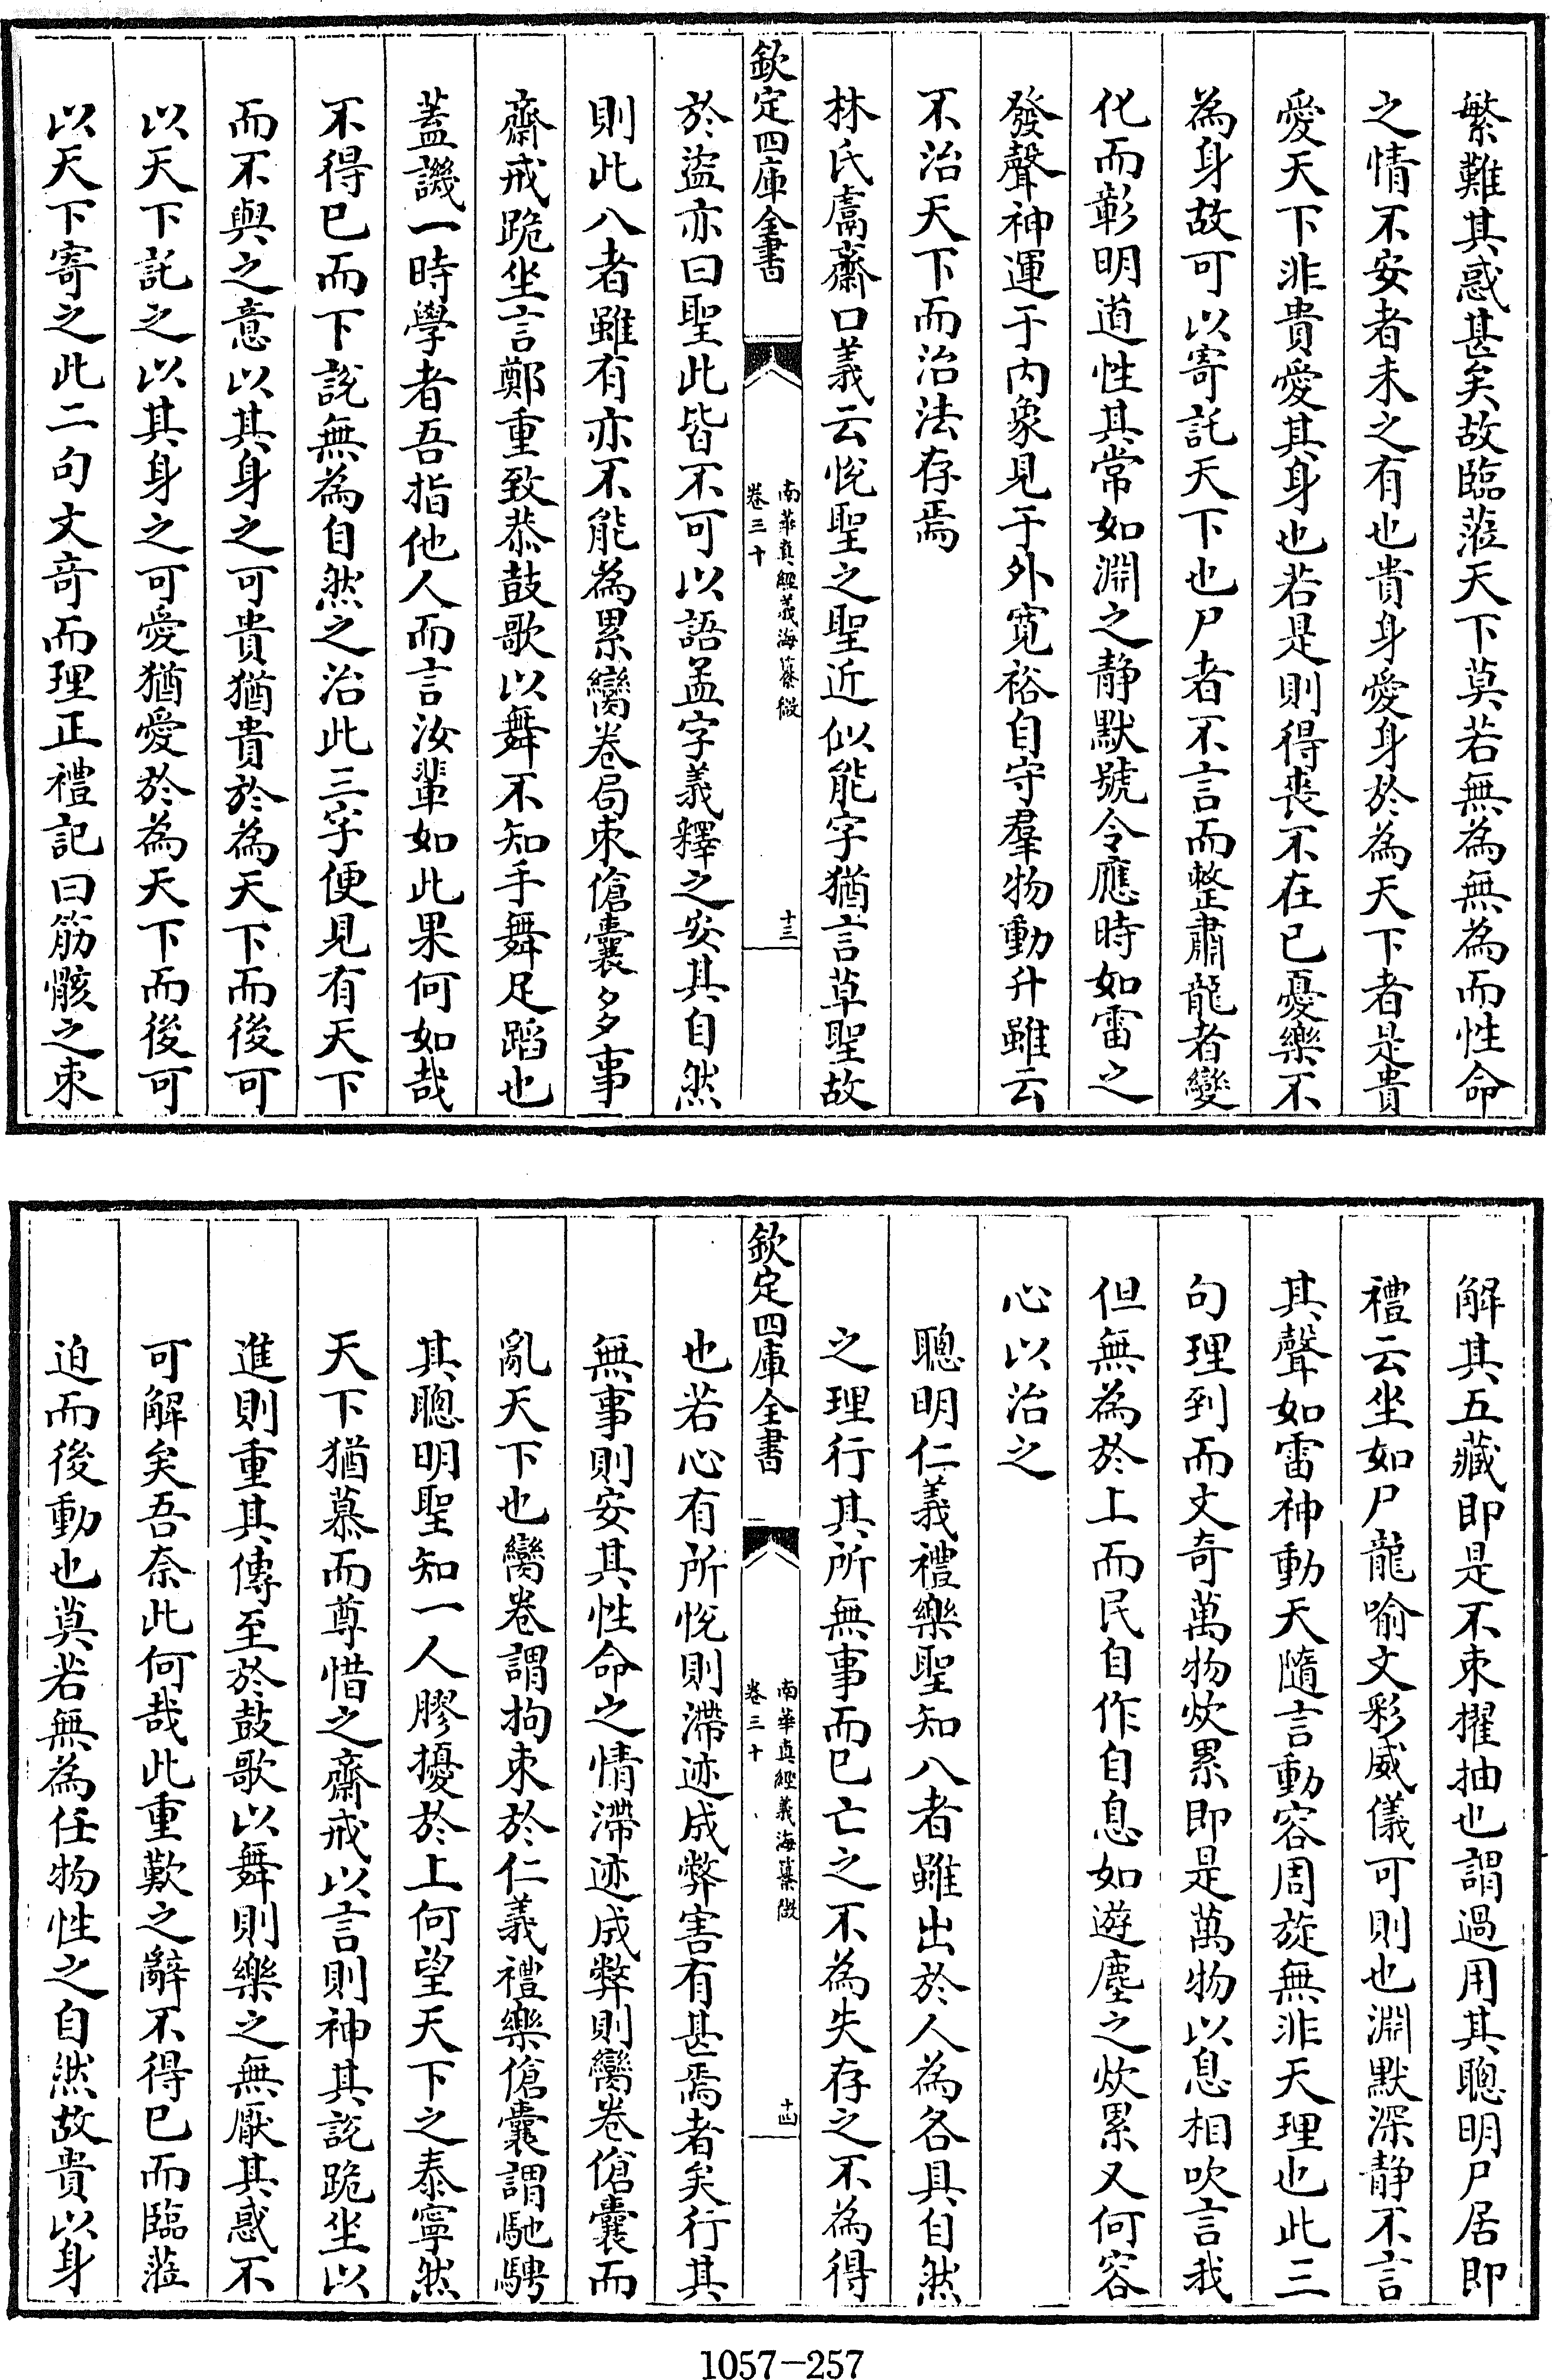 繁難其惑甚矣故臨蒞天下莫若無為無為而性命
之情不安者未之有也貴身愛身於為天下者是貴
愛天下非貴愛其身也若是則得喪不在已憂樂不
為身故可以寄託天下也尸者不言而整肅龍者變
化而彰明道性其常如淵之靜默號令應時如雷之
發聲神運于内象見于外寛裕自守羣物動升雖云
不治天下而治法存焉
林氏鬳齋口義云悅聖之聖近似能字猶言草聖故
欽定四庫全書
南華真經義海纂微
卷三十
十三
於盜亦曰聖此皆不可以語孟字義釋之安其自然
則此八者雖有亦不能為累臠卷局束傖囊多事
齋戒跪坐言鄭重致恭鼓歌以舞不知手舞足蹈也
蓋譏一時學者吾指他人而言汝輩如此果何如哉
不得已而下說無為自然之治此三字便見有天下
而不與之意以其身之可貴猶貴於為天下而後可
以天下託之以其身之可愛猶愛於為天下而後可
以天下寄之此二句文奇而理正禮記曰筋骸之束
解其五藏即是不束擢抽也謂過用其聰明尸居即
禮云坐如尸龍喻文彩威儀可則也淵默深靜不言
其聲如雷神動天隨言動容周旋無非天理也此三
句理到而文奇萬物炊累即是萬物以息相吹言我
但無為於上而民自作自息如遊塵之炊累又何容
心以治之
聰明仁義禮樂聖知八者雖出於人為各具自然
之理行其所無事而已亡之不為失存之不為得
欽定四庫全書
南華真經義海纂微
卷三十
十四
也若心有所悅則滯迹成弊害有甚焉者矣行其
無事則安其性命之情滯迹成弊則臠卷傖囊而
亂天下也臠卷謂拘束於仁義禮樂傖囊謂馳騁
其聰明聖知一人膠擾於上何望天下之泰寧然
天下猶慕而尊惜之齋戒以言則神其說跪坐以
進則重其傳至於鼓歌以舞則樂之無厭其惑不
可解矣吾奈此何哉此重歎之辭不得已而臨蒞
迫而後動也莫若無為任物性之自然故貴以身
1057-257